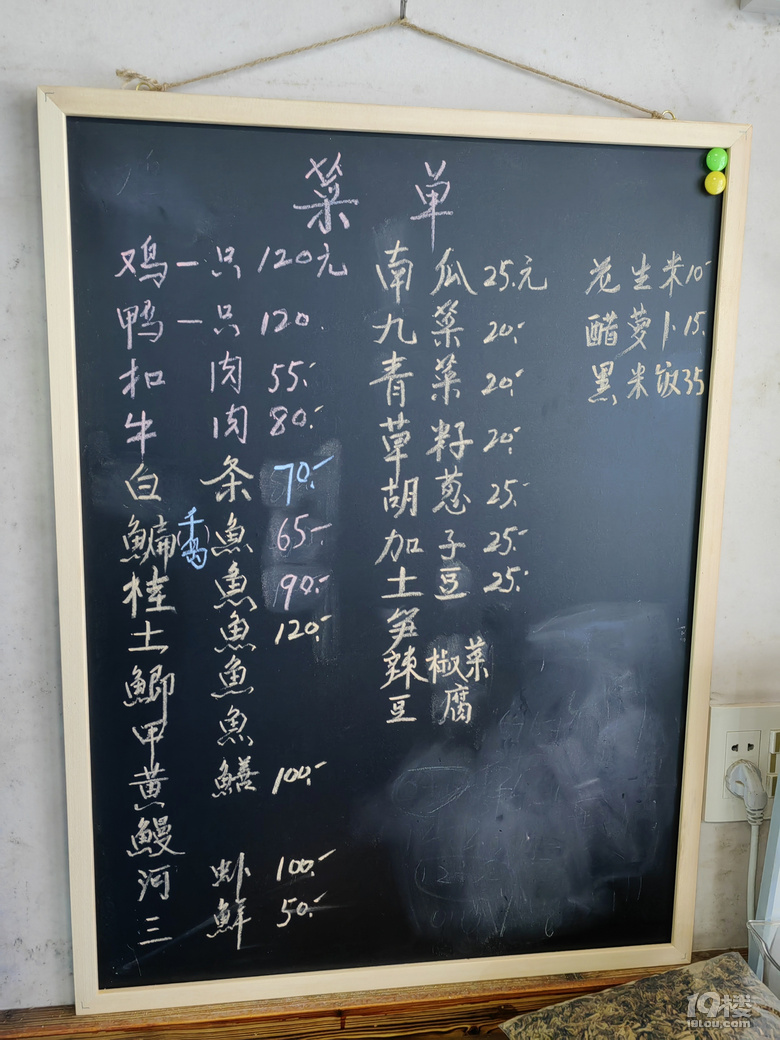 菜单
鸡一只120元
鸭一只120
扣肉55:-
牛肉80:-
白条70:-
鯿(千岛)魚65:-
桂魚90:-
土魚120:-
鯽魚
甲魚
黄鱔100:-
鰻
河虾100:-
三鮮50:-
南瓜25元
九菜20:-
青菜20:-
草籽20:-
胡葱25:-
加子25:-
土豆25:-
笋
辣椒菜
豆腐
花生米10-
醋萝卜15:
黑米饭35
19楼
19lou.com